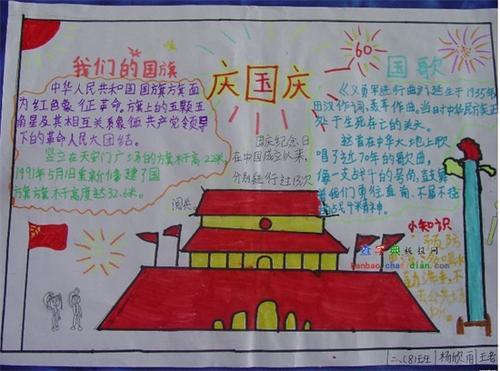 我们的国旗
中华人民共和国国旗旗面
为红色象征革命。旗上的五颗五
角星及其相互关系象征共产党领导
下的革命人民大团结。
竖立在天安门广场的旗杆高22米
1991年5月1日重新修建了国
旗旗杆高度达32.6米。
庆国庆
国庆纪念日
在中国成立以来,
分别进行过13次
阅兵
60
国歌
《义勇军进行曲》诞生于1935年
田汉作词,聂耳作曲,当时中华民族正
处于生死存亡的关头。
这首在中华大地上歌
唱了这70年的歌曲,
像一支战斗的号角,鼓舞
着他们勇往直前、不屈不挠
的战斗精神。
小知识
数字典板报网
banbao.chazidian.com
二、(8)班
杨欣雨